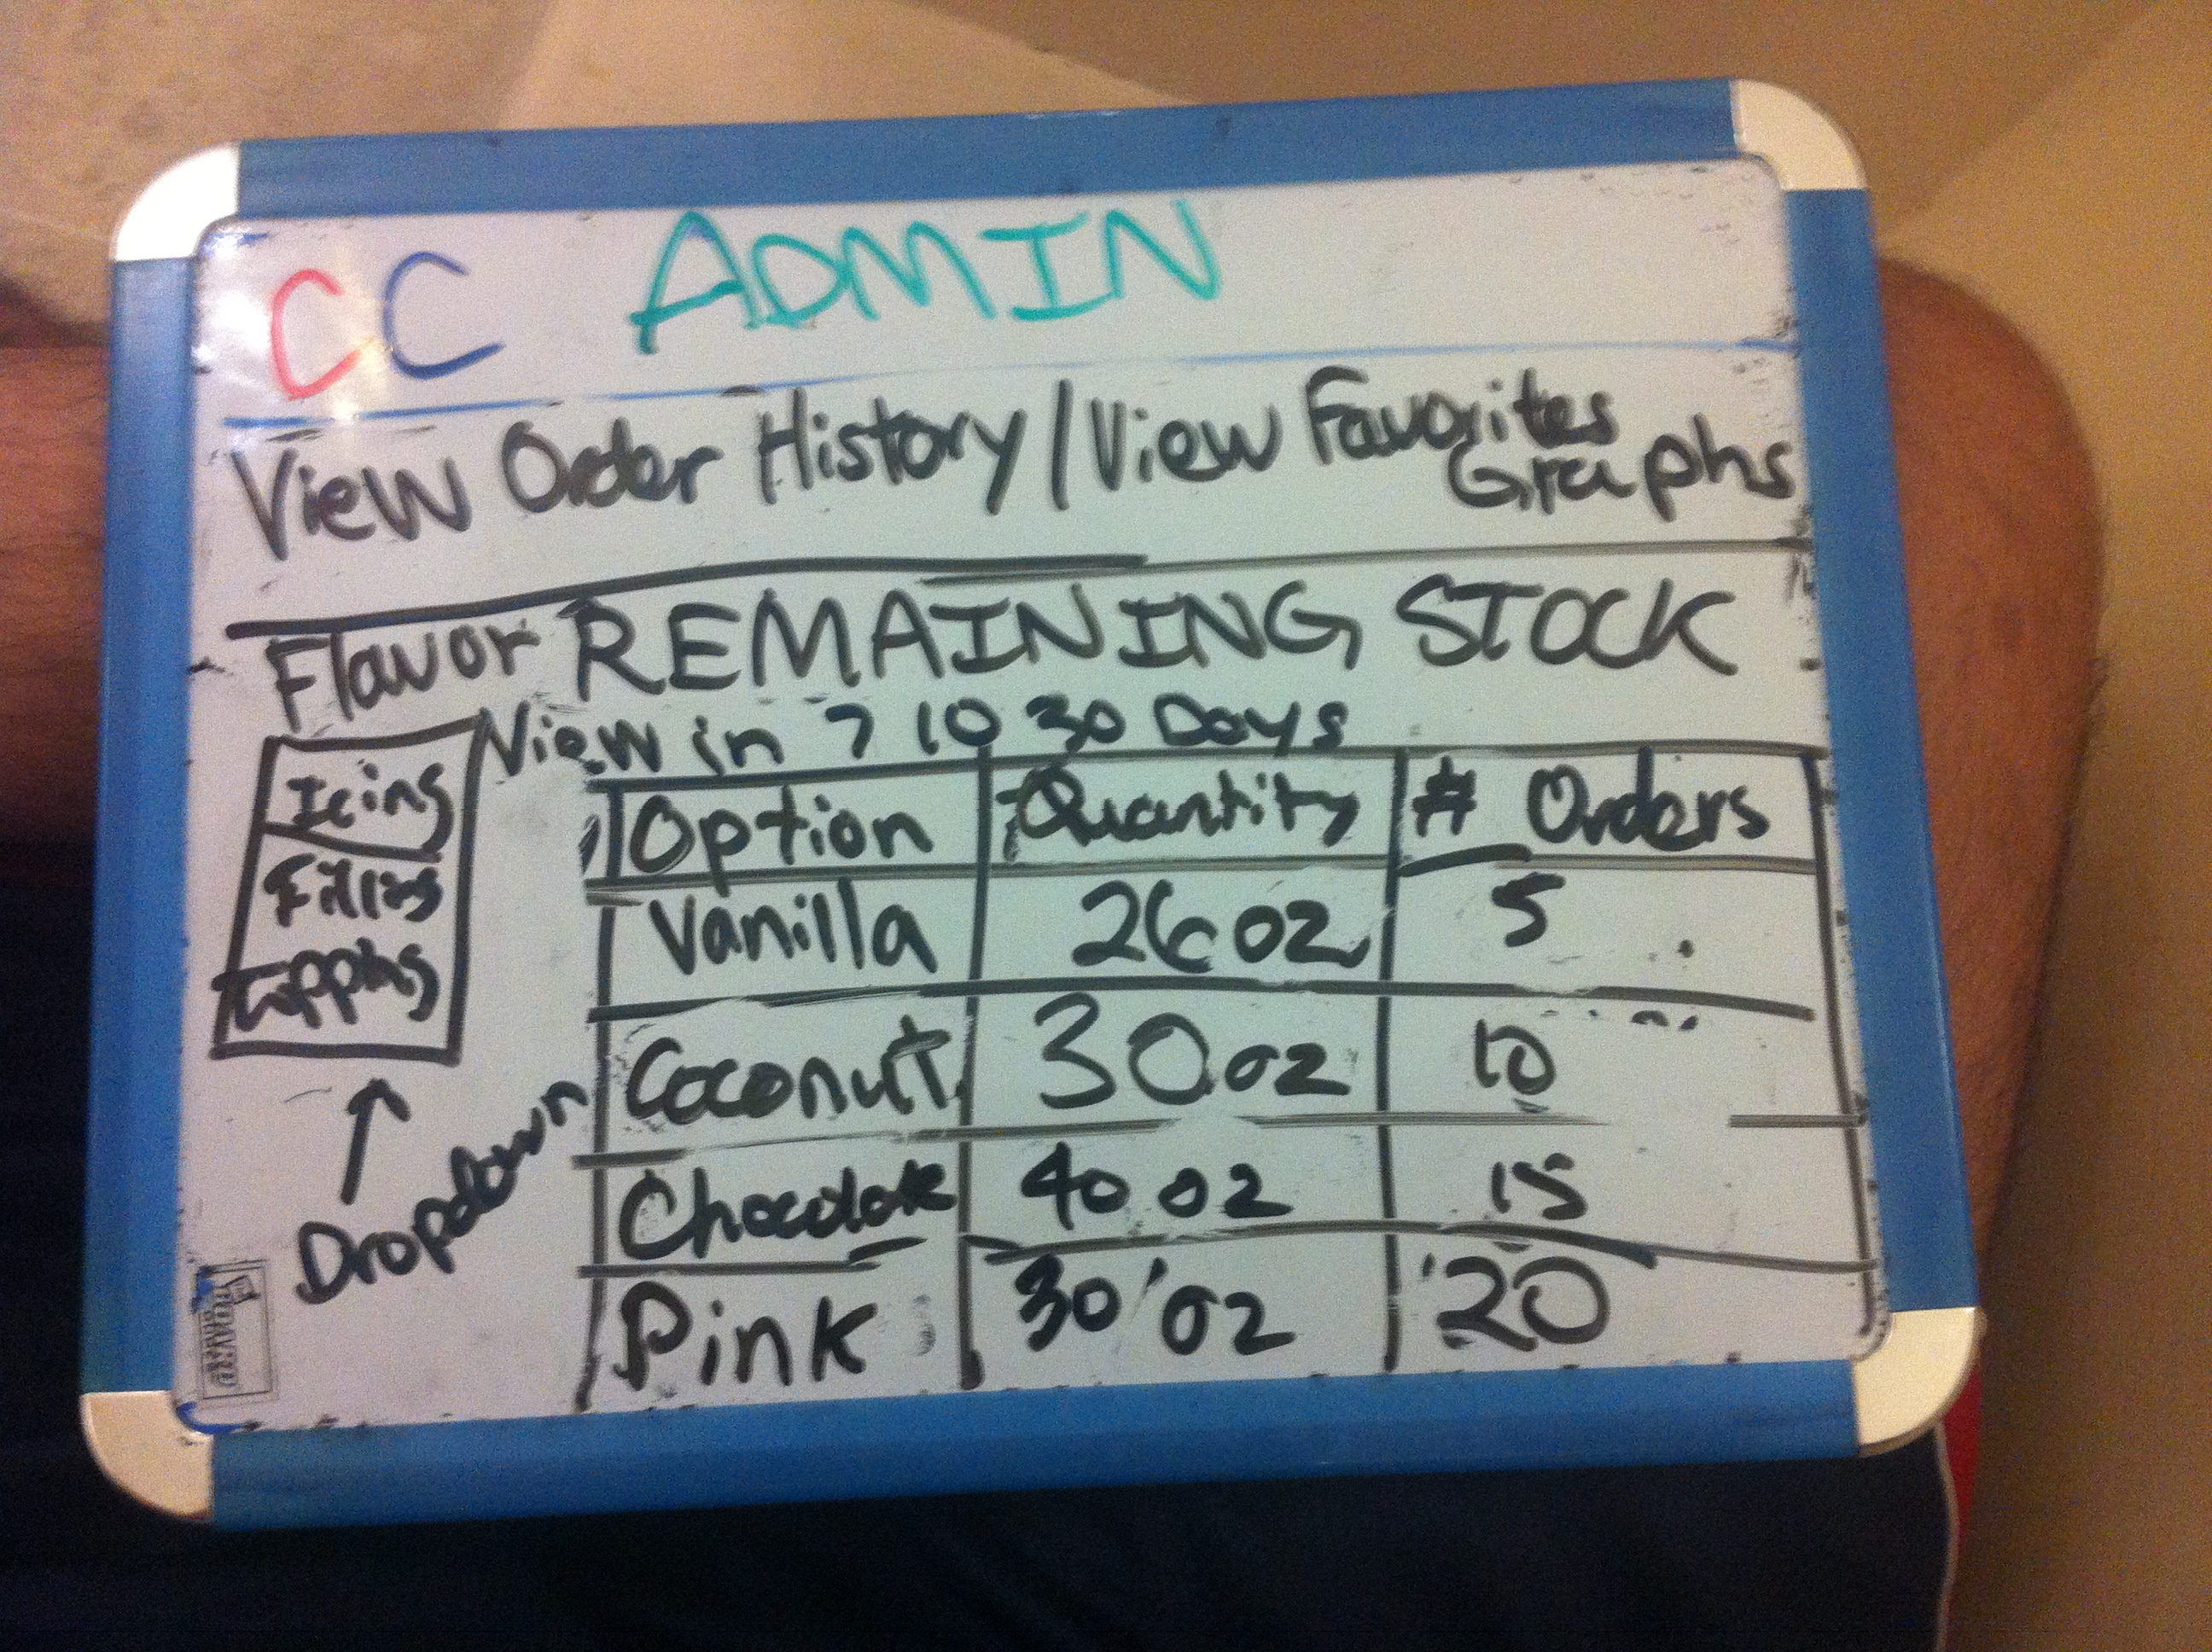 CC ADMIN
View Order History / View Favorites
Graphs
Flavor REMAINING STOCK
View in 7 10 30 Days
Icing
Filling
Toppings
Dropdown
Option Quantity # Orders
Vanilla 26 oz 5
Coconut 30 oz 10
Chocolate 40 oz 15
Pink 30 oz 20